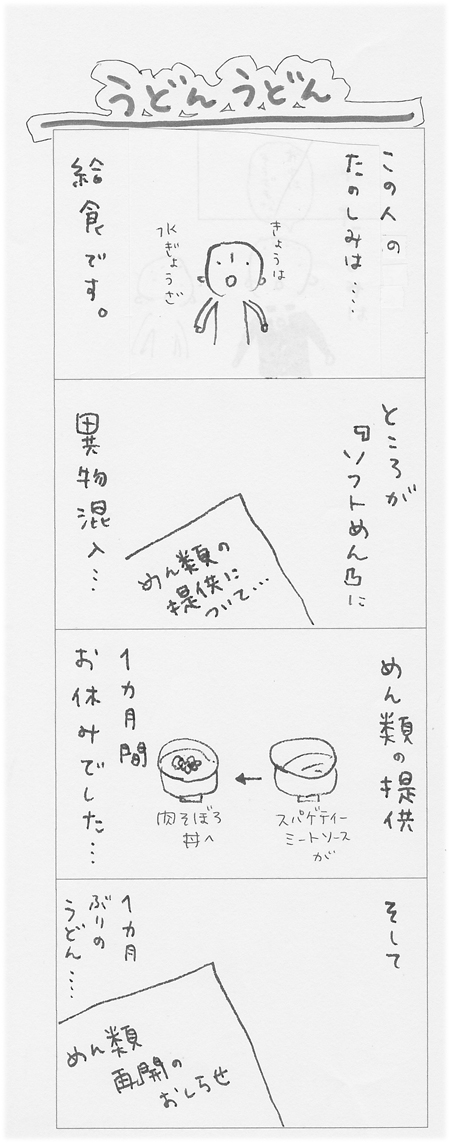 うどんうどん
この人の
たのしみは‥‥
きょうは
水ぎょうざ
給食です。
ところが
『ソフトめん』に
異物混入…
めん類の
提供に
ついて…
めん類の提供
スパゲティー
ミートソース
が
肉そぼろ
丼へ
1カ月間
お休みでした…
そして
1カ月
ぶりの
うどん‥‥
めん類
再開の
おしらせ